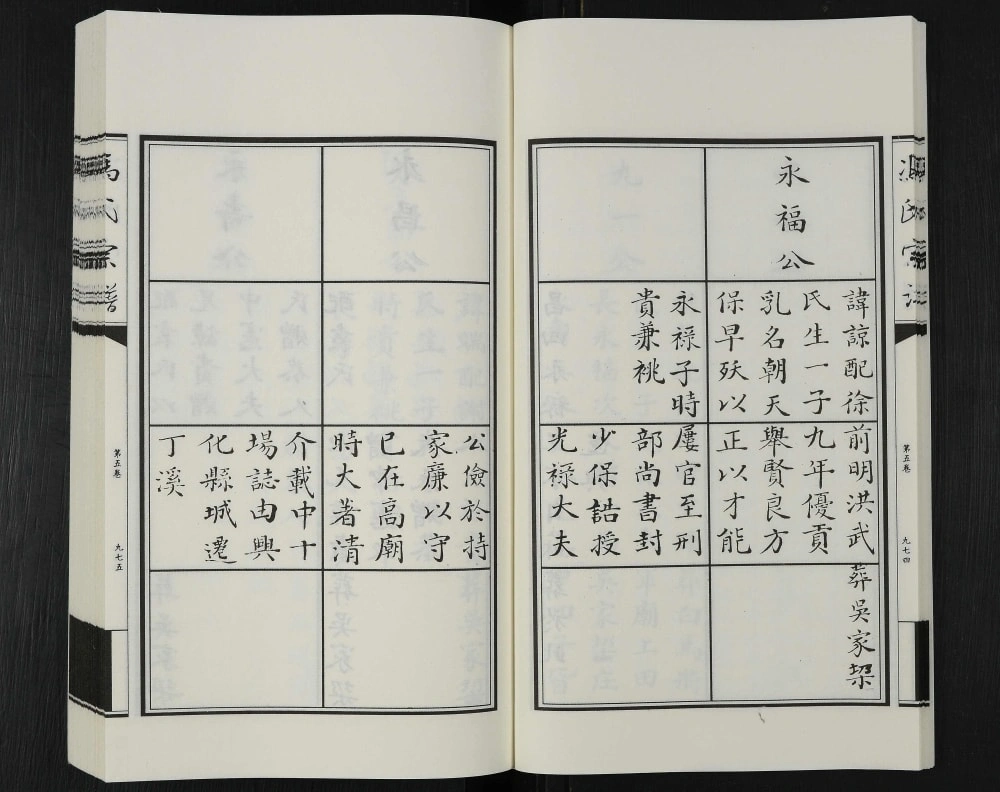 永福公
諱諒配徐
氏生一子
乳名朝天
保早殀以
永祿子時
貴兼祧
前明洪武
九年優貢
舉賢良方
正以才能
屢官至刑
部尚書封
少保誥授
光祿大夫
葬吳家垜
第五卷
九七四
公儉於持
家廉以守
已在高廟
時大著清
介載中十
場誌由興
化縣城遷
丁溪
馮氏宗譜
第五卷
九七五